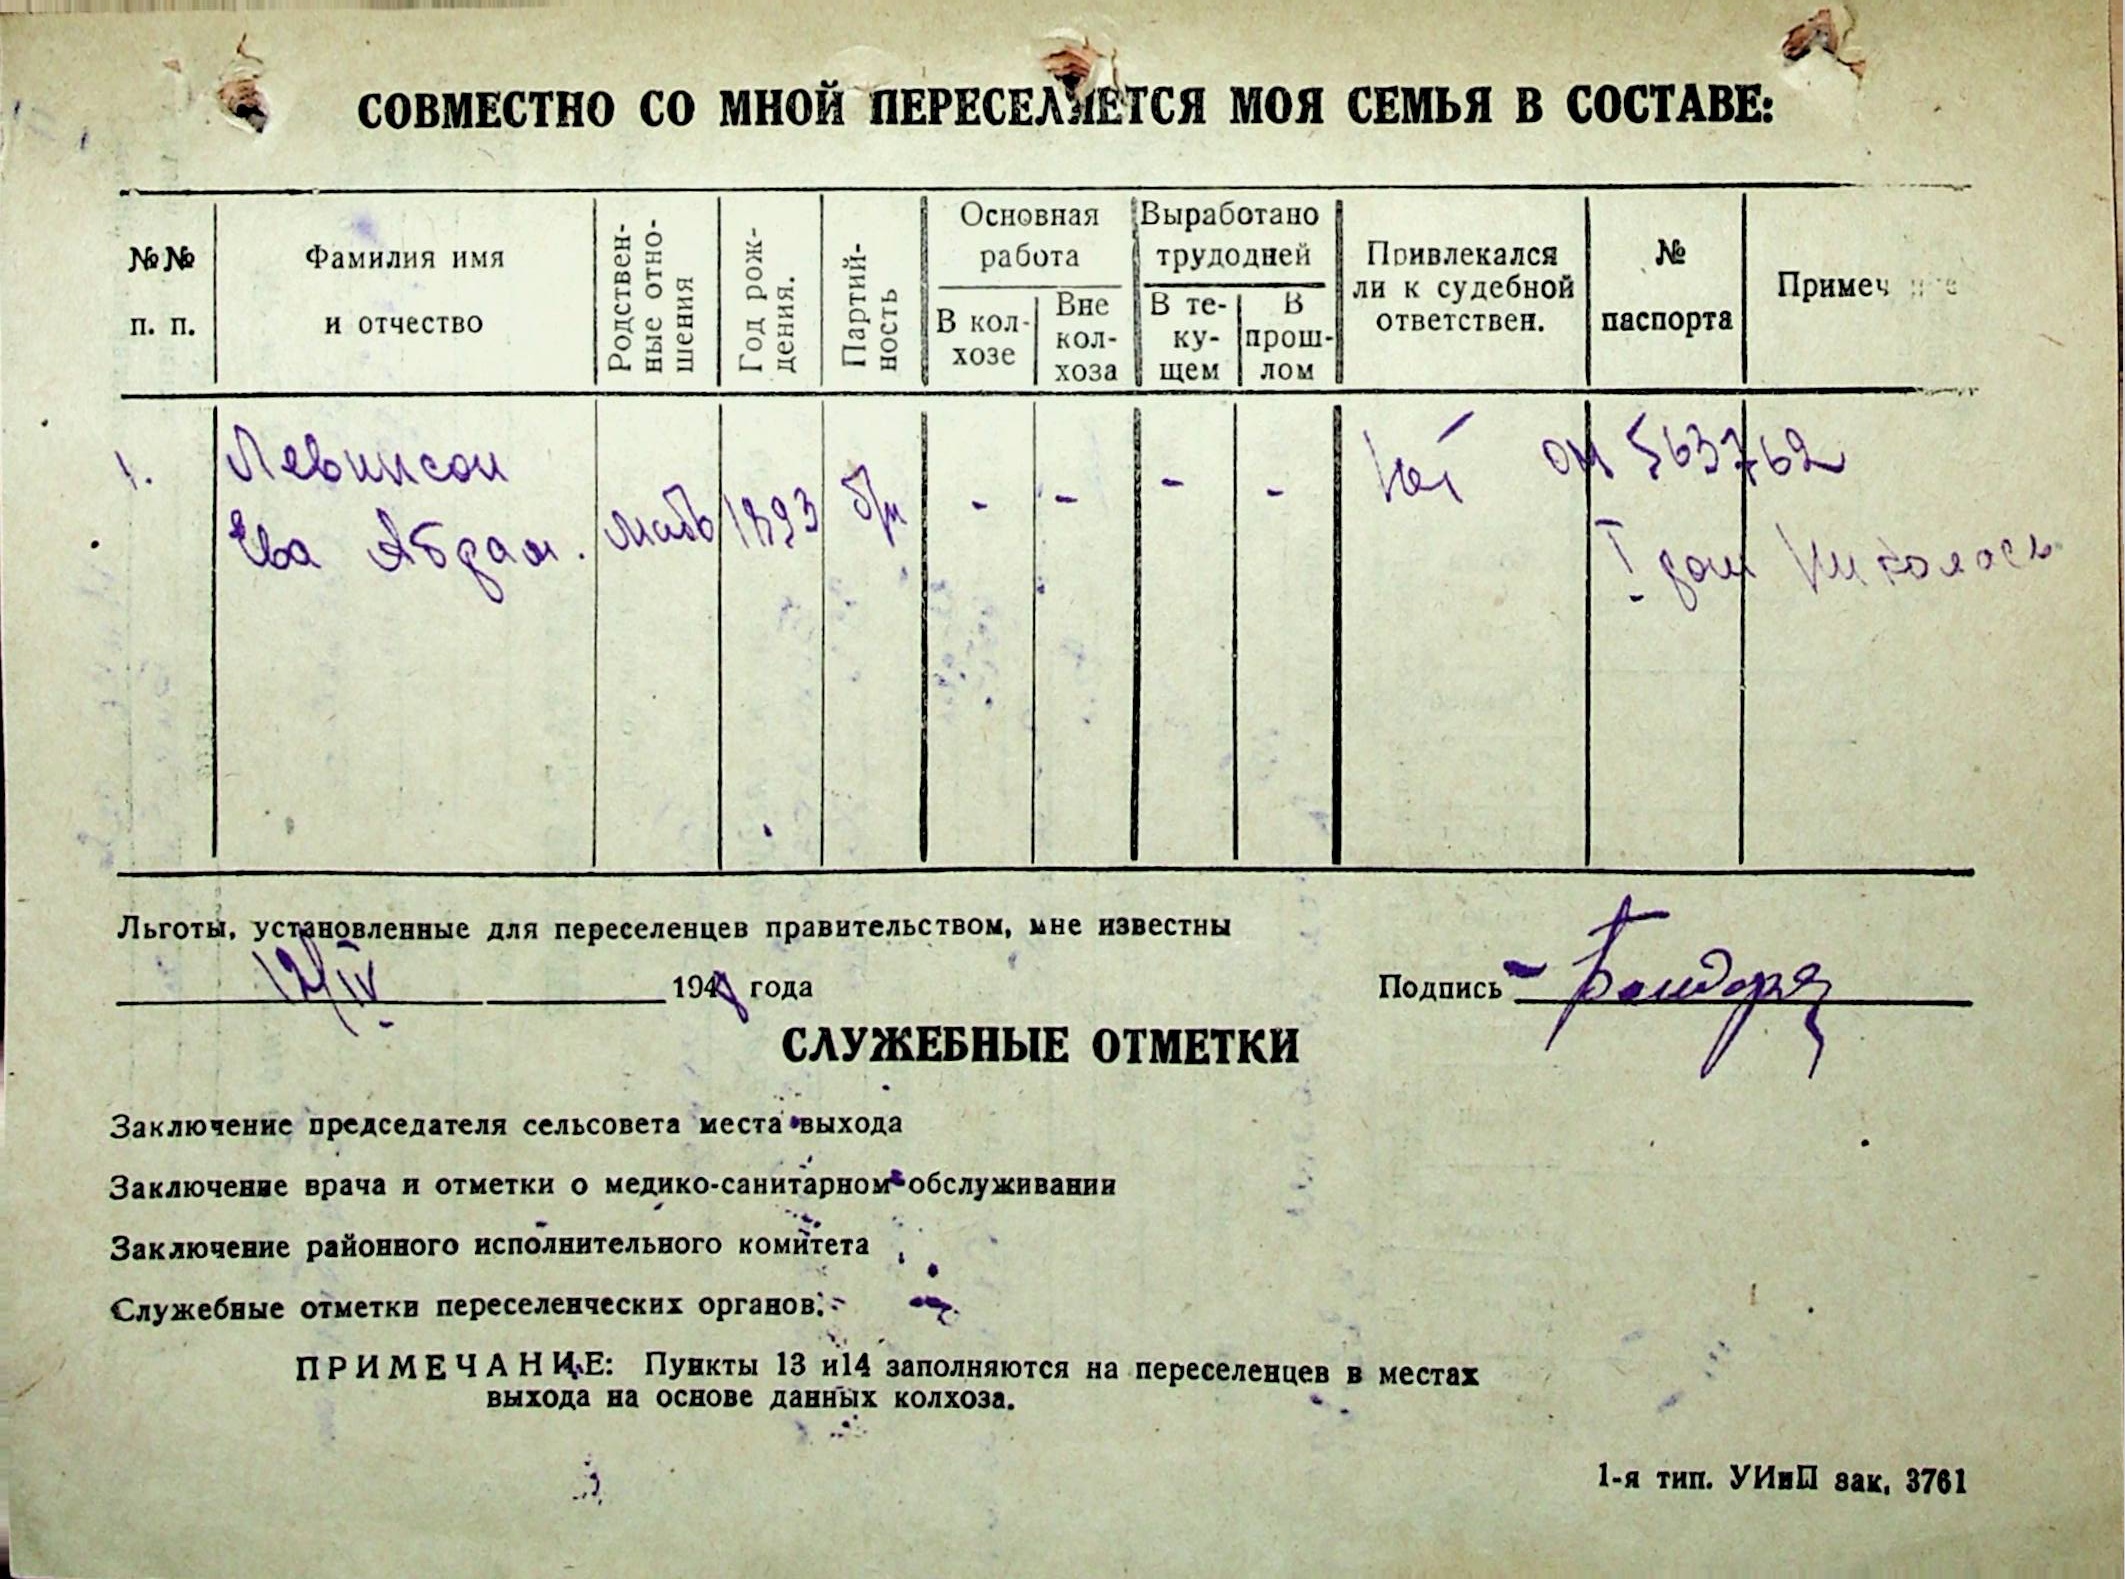 СОВМЕСТНО СО МНОЙ ПЕРЕСЕЛЯЕТСЯ МОЯ СЕМЬЯ В СОСТАВЕ:
№№ п. п.
Фамилия имя и отчество
Родствен-
ные отно-
шения
Год рож-
дения.
Партий-
ность
Основная работа
В кол-
хозе
Вне
кол-
хоза
Выработано трудодней
В те-
ку-
щем
В
прош-
лом
Привлекался
ли к судебной
ответствен.
№
паспорта
Примеч
1.
Левинсон
Ева Абрам.
мать
1893
б/п
-
-
-
-
Нет
563762
Льготы, установленные для переселенцев правительством, мне известны
12/IV 1948 года
Подпись
СЛУЖЕБНЫЕ ОТМЕТКИ
Заключение председателя сельсовета места выхода
Заключение врача и отметки о медико-санитарном обслуживании
Заключение районного исполнительного комитета
Служебные отметки переселенческих органов:
ПРИМЕЧАНИЕ: Пункты 13 и14 заполняются на переселенцев в местах
выхода на основе данных колхоза.
1-я тип. УИиП зак, 3761